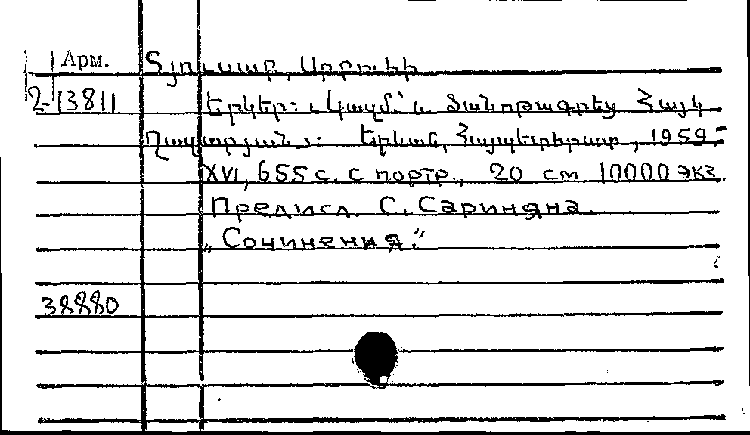 Арм. Տյուսաբ, Սրբուհի
2-13811 Երկեր: Կազմ. և ծանոթագրեց Հայկ
Ղազարյանը: Երևան, Հայպետհրատ, 1959.
XVI, 655 с. с портр., 20 см 10000 экз.
Предисл. С. Сариняна.
„Сочинения."
38880